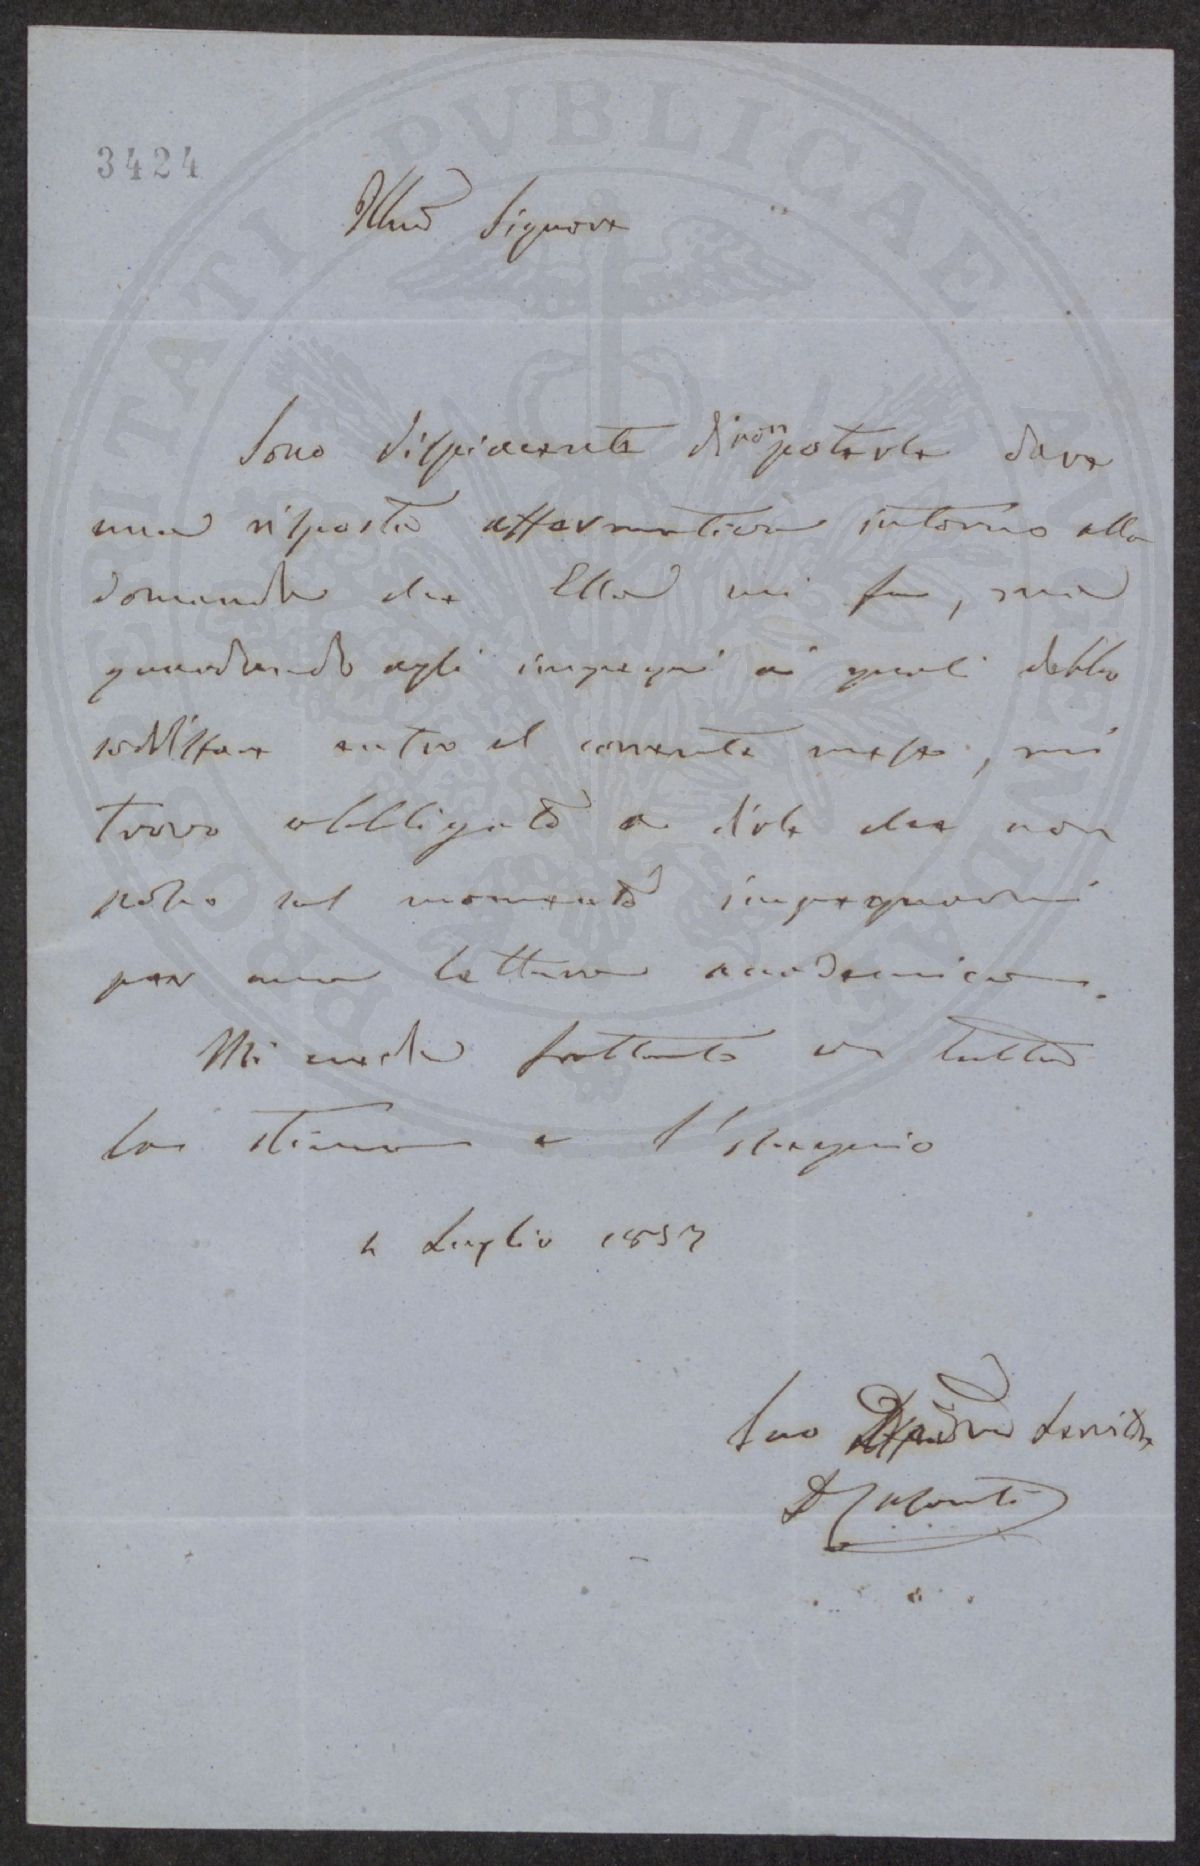 3424
Illmo Signore
Sono dispiacente di non poterle dare
una risposta affermativa intorno alla
domanda che Ella mi fa, ma
guardando agli impegni ai quali debbo
soddisfare entro il corrente mese, mi
trovo obbligato a dirle che non
posso sul momento impegnarmi
per una lettura accademica.
Mi creda frattanto con tutta
la stima e l'ossequio
4 Luglio 1857
Suo Servitore
PROSPERITATI PVBLICAE AVGENDAE